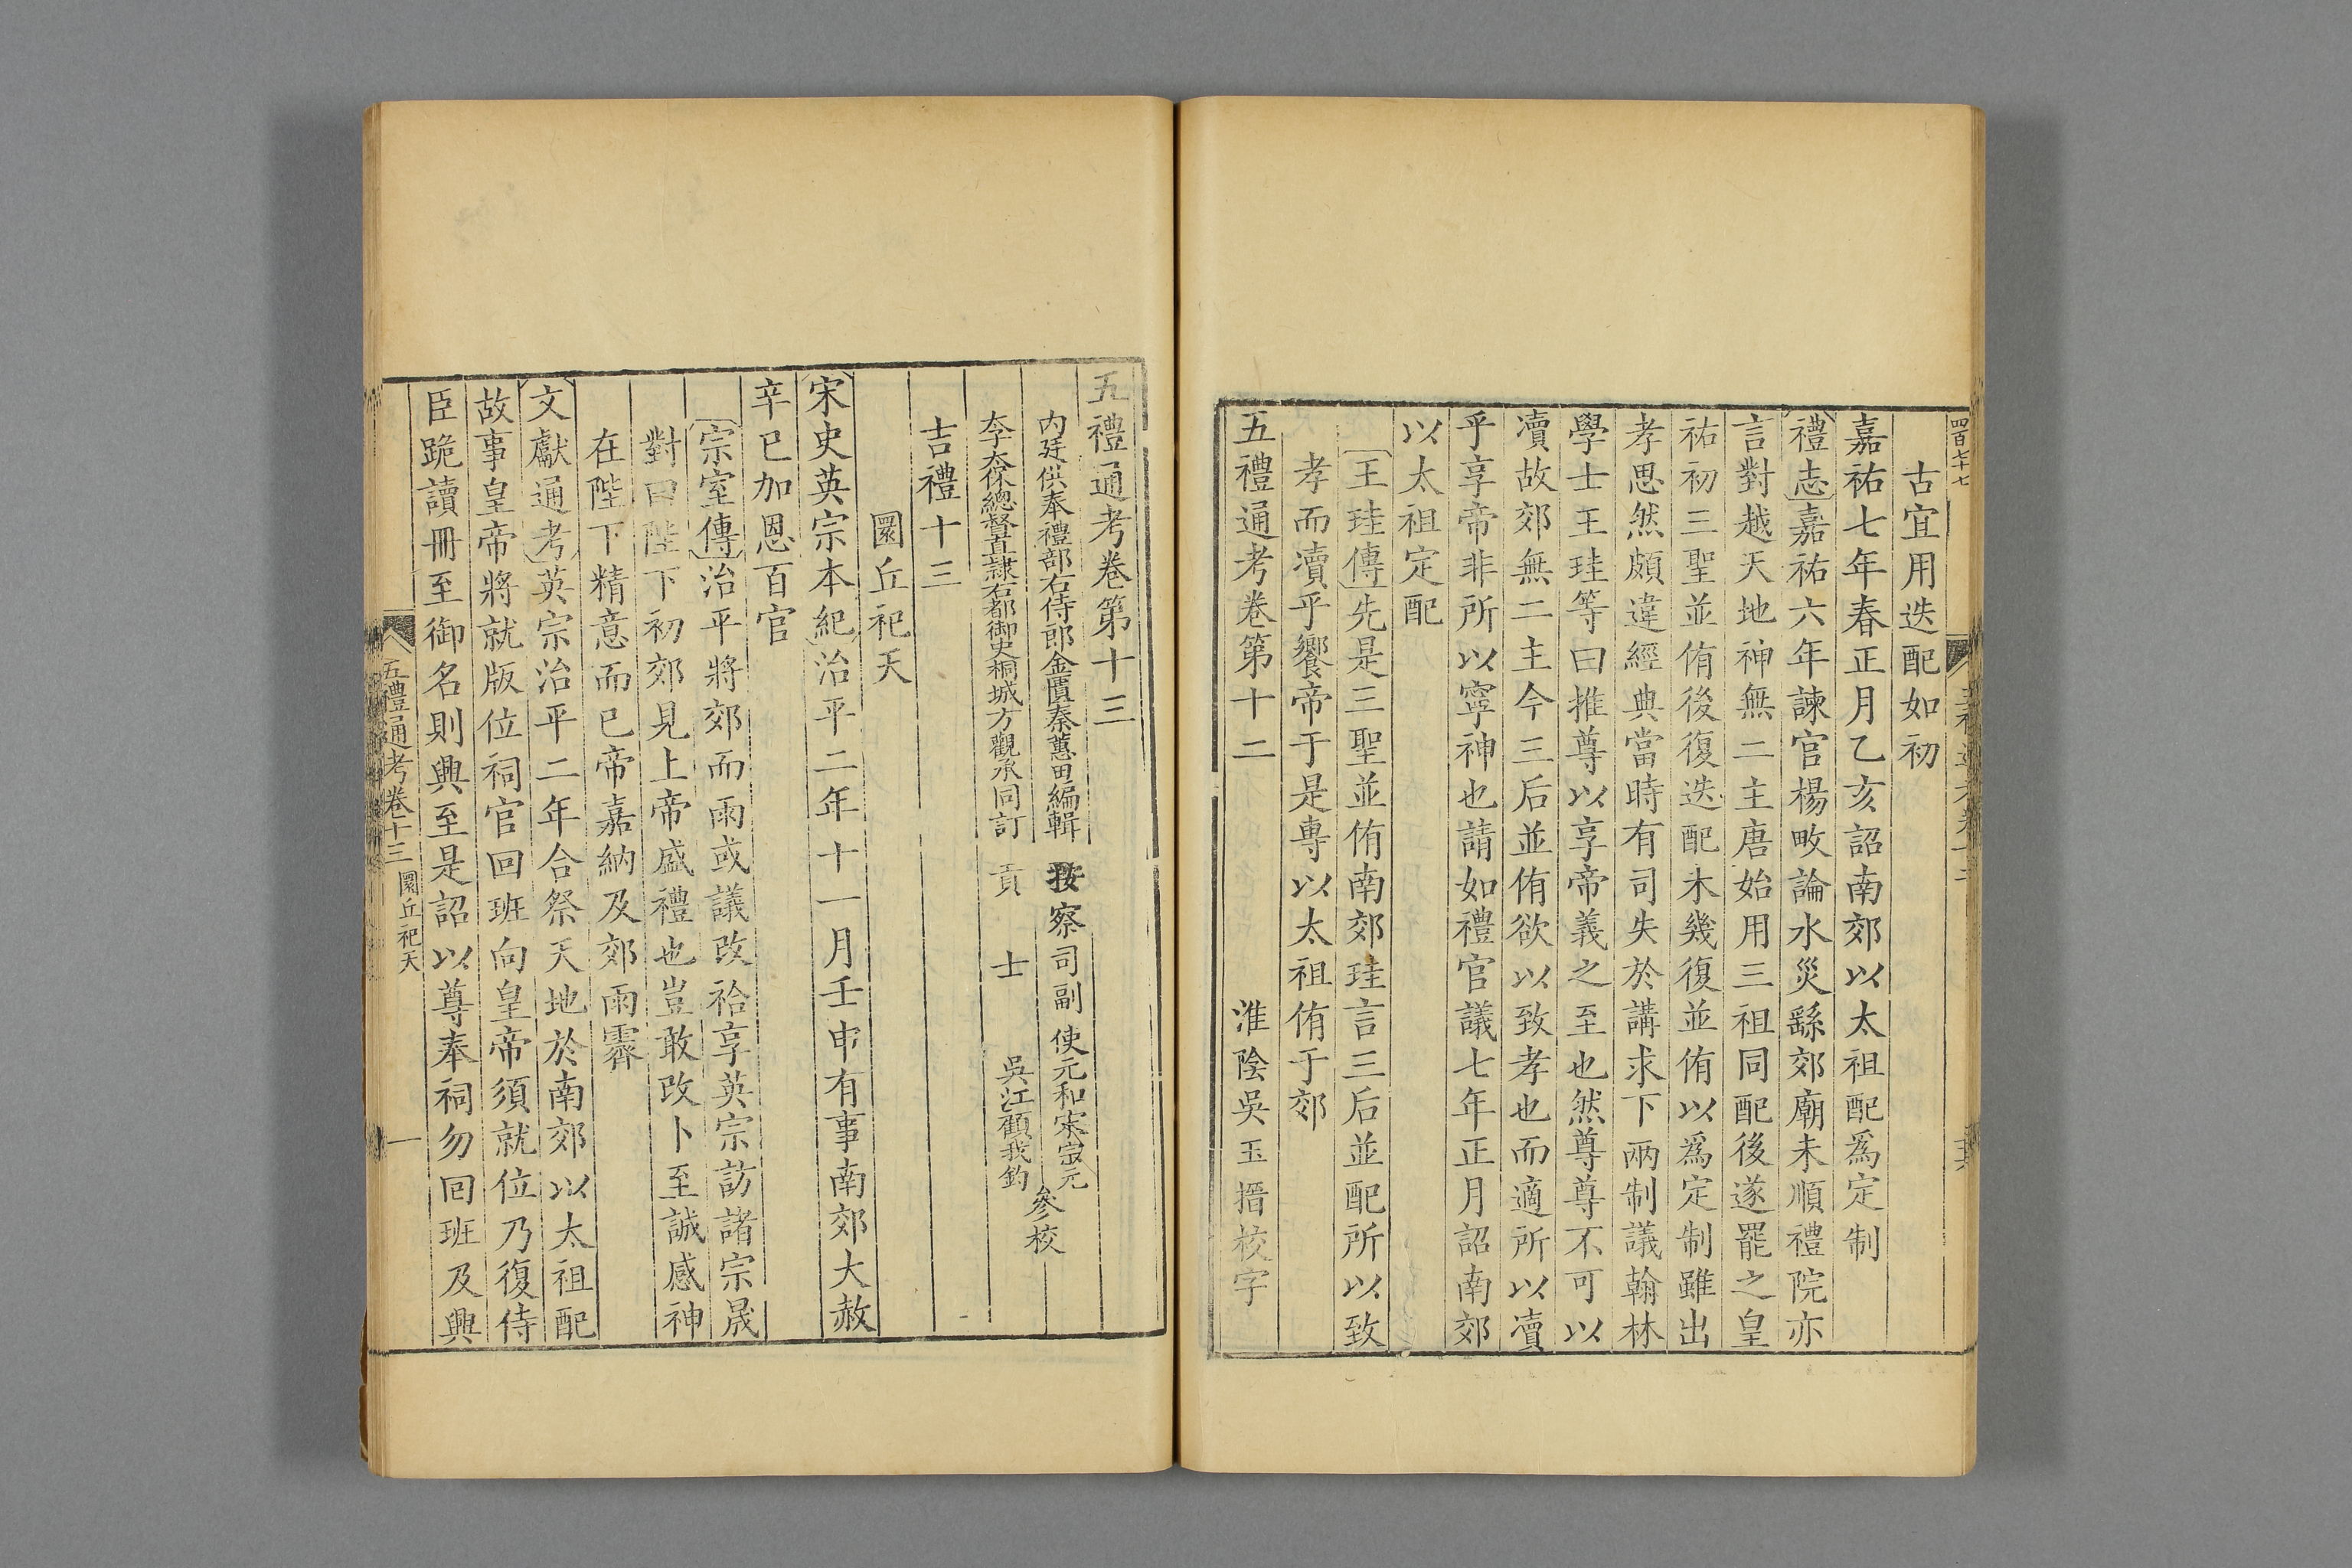 四百七十七
古宜用迭配如初
嘉祐七年春正月乙亥詔南郊以太祖配爲定制
禮志嘉祐六年諫官楊畋論水災繇郊廟未順禮院亦
言對越天地神無二主唐始用三祖同配後遂罷之皇
祐初三聖並侑後復迭配未幾復並侑以爲定制雖出
孝思然頗違經典當時有司失於講求下兩制議翰林
學士王珪等曰推尊以享帝義之至也然尊尊不可以
瀆故郊無二主今三后並侑欲以致孝也而適所以瀆
乎享帝非所以寧神也請如禮官議七年正月詔南郊
以太祖定配
王珪傳先是三聖並侑南郊珪言三后並配所以致
孝而瀆乎饗帝于是專以太祖侑于郊
五禮通考卷第十二
淮陰吳玉搢校字
五禮通考卷第十三
内廷供奉禮部右侍郎金匱秦蕙田編輯
按察司副使元和宋宗元
李太保總督直隸右都御史桐城方觀承同訂
貢士吳江顧我鈞
參校
吉禮十三
圜丘祀天
宋史英宗本紀治平二年十一月壬申有事南郊大赦
辛巳加恩百官
宗室傳治平將郊而雨或議改祫享英宗訪諸宗晟
對曰陛下初郊見上帝盛禮也豈敢改卜至誠感神
在陛下精意而已帝嘉納及郊雨霽
文獻通考英宗治平二年合祭天地於南郊以太祖配
故事皇帝將就版位祠官回班向皇帝須就位乃復侍
臣跪讀冊至御名則興至是詔以尊奉祠勿回班及興
五禮通考卷十三 圜丘祀天 一